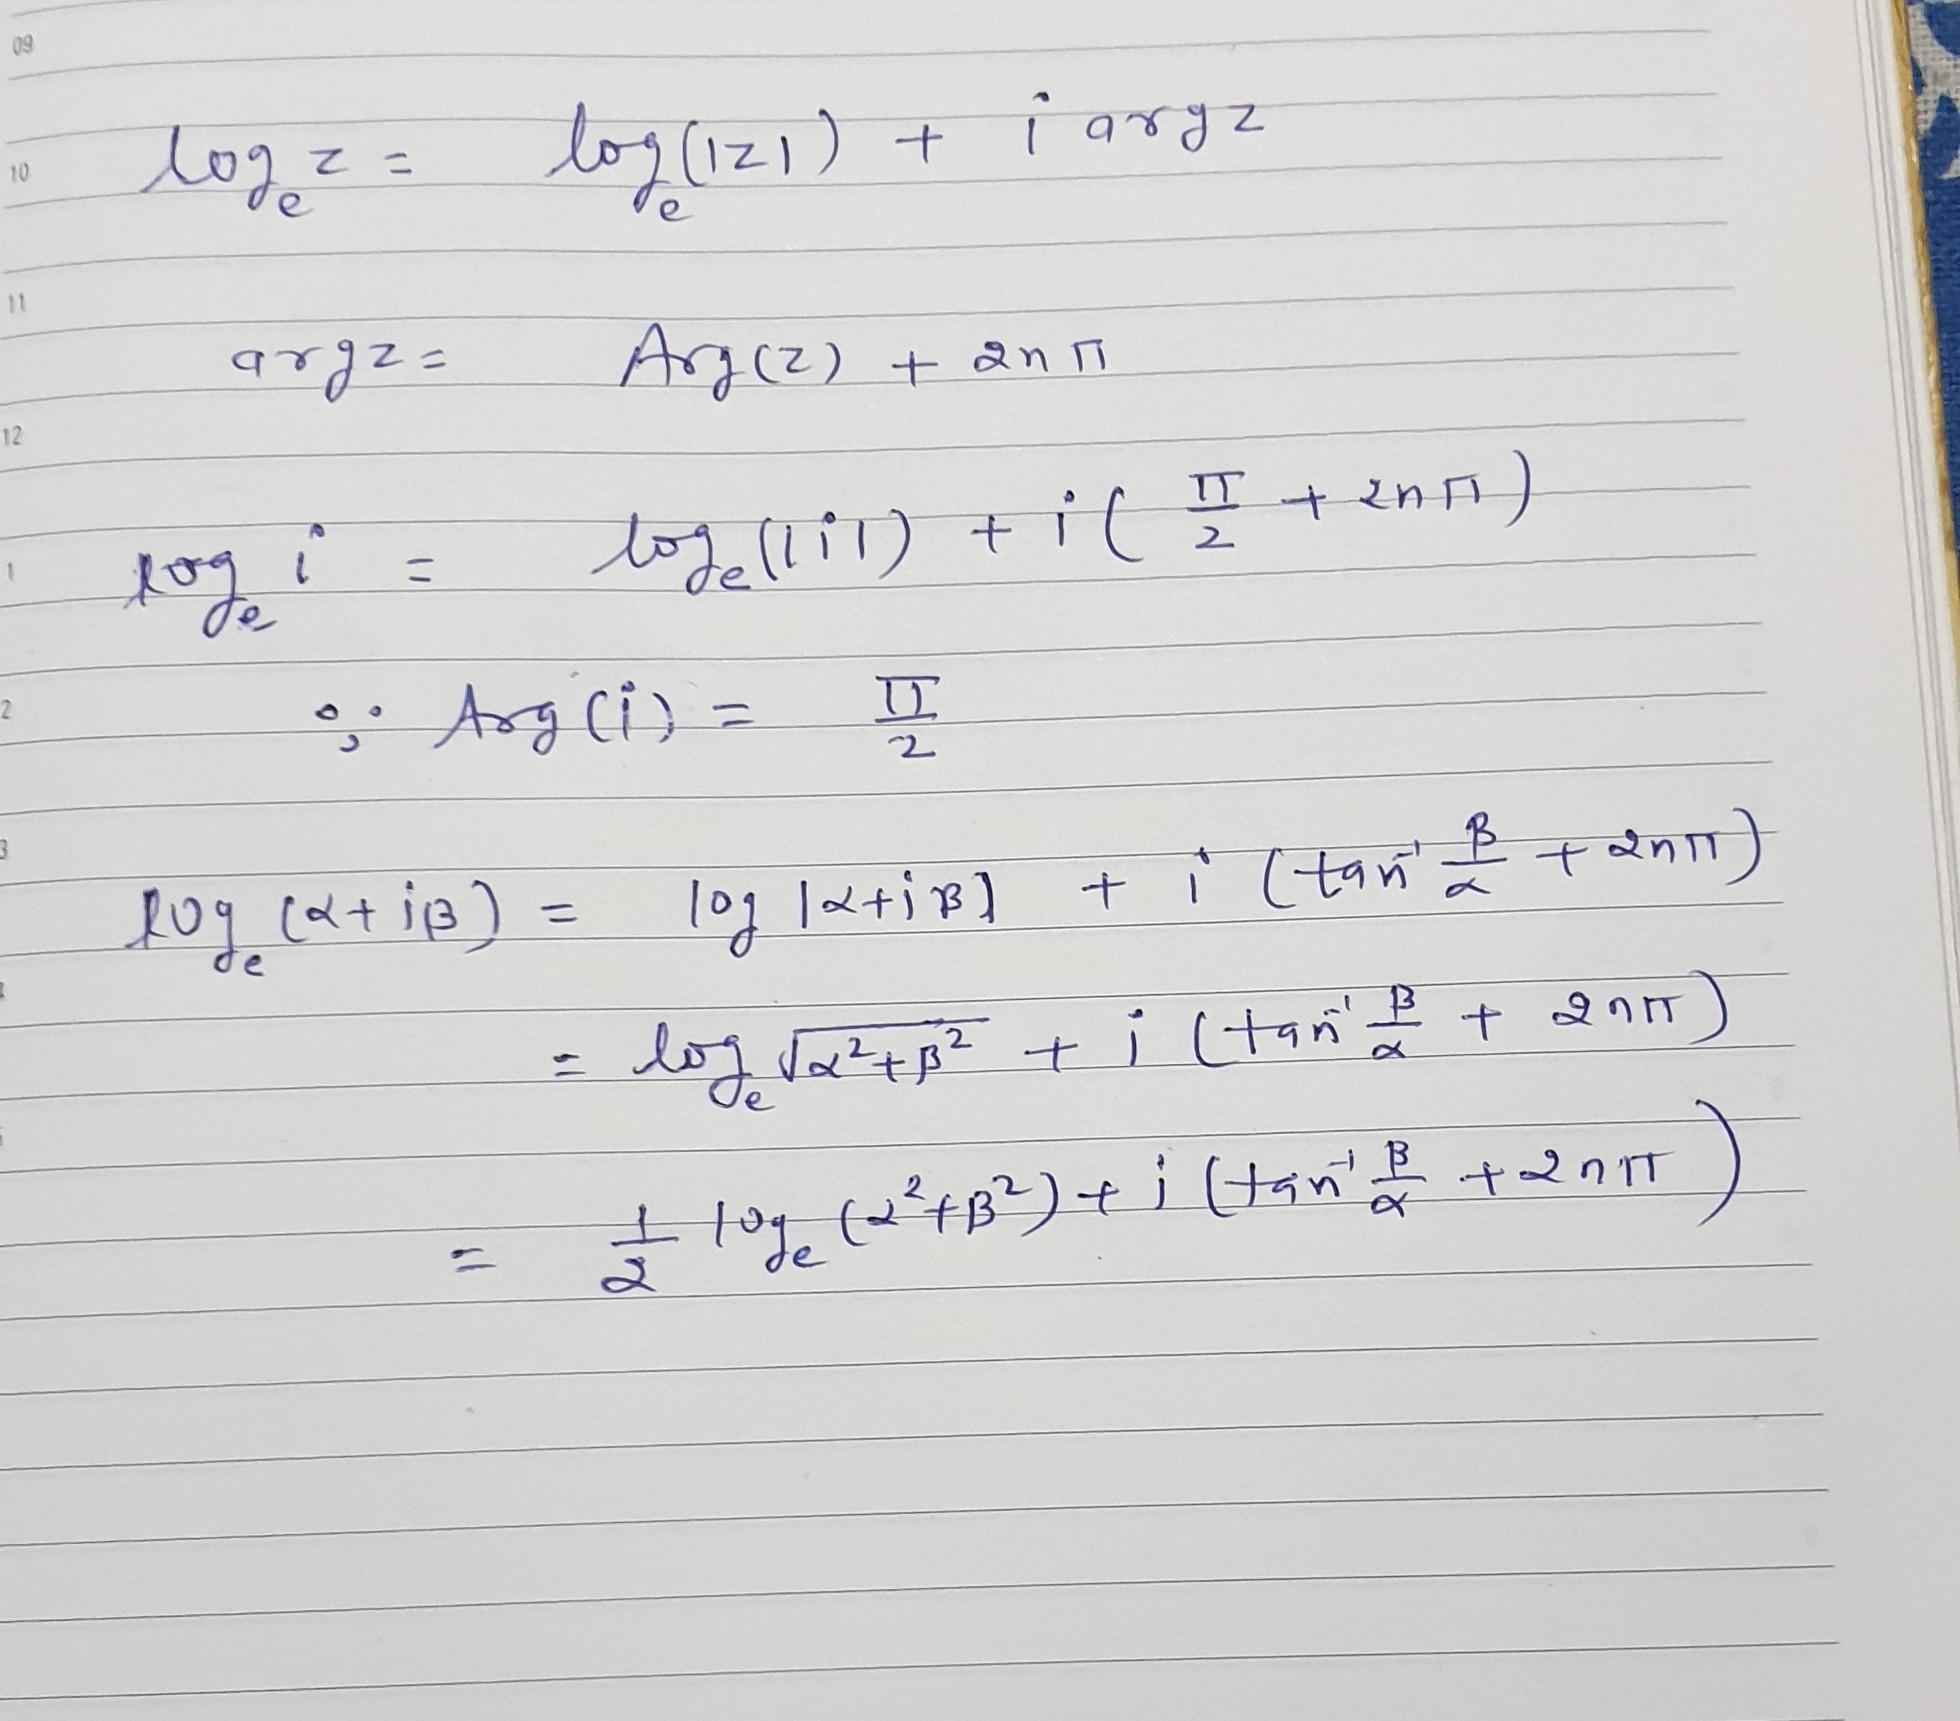 09
10 log_e z = log_e(|z|) + i arg z
11
arg z = Arg(z) + 2nπ
12
1 log_e i = log_e(|i|) + i(π/2 + 2nπ)
2 ∵ Arg(i) = π/2
3
log_e (α+iβ) = log |α+iβ| + i (tan⁻¹ β/α + 2nπ)
= log_e √(α²+β²) + i (tan⁻¹ β/α + 2nπ)
= 1/2 log_e (α²+β²) + i (tan⁻¹ β/α + 2nπ)